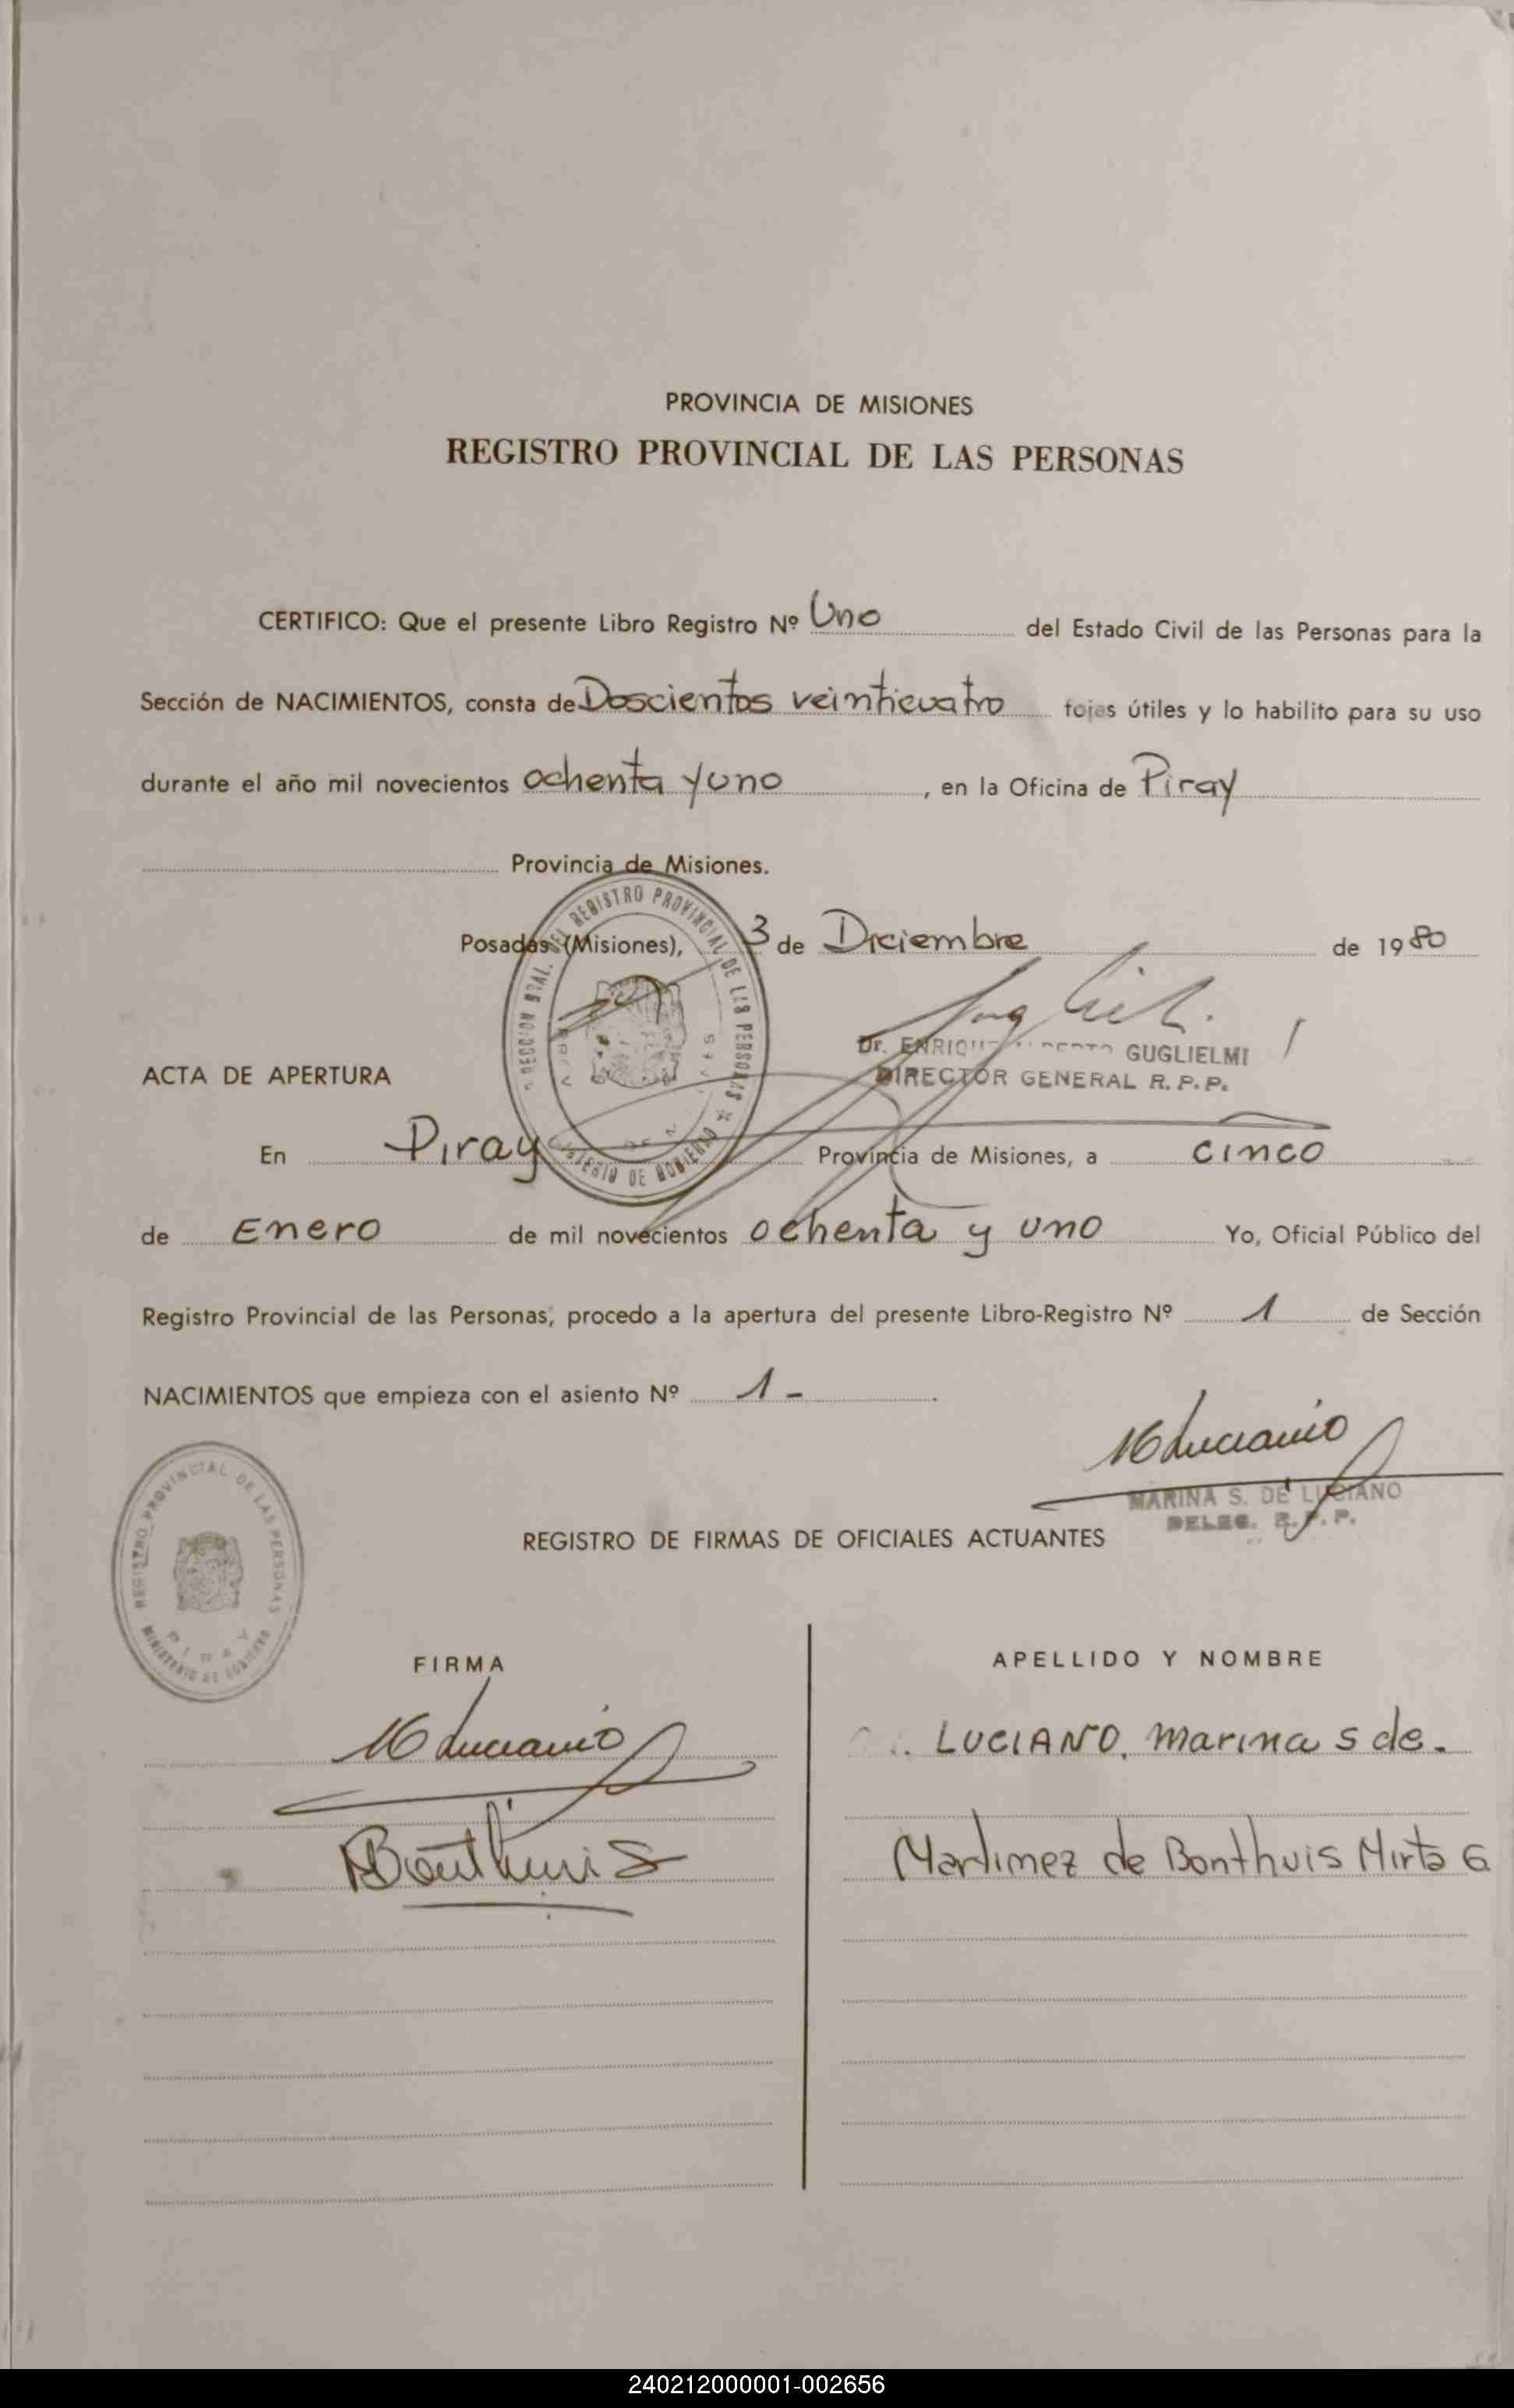 PROVINCIA DE MISIONES
REGISTRO PROVINCIAL DE LAS PERSONAS
CERTIFICO: Que el presente Libro Registro Nº Uno del Estado Civil de las Personas para la
Sección de NACIMIENTOS, consta de Doscientos veinticuatro fojas útiles y lo habilito para su uso
durante el año mil novecientos ochenta y uno, en la Oficina de Piray
Provincia de Misiones.
Posadas (Misiones), 3 de Diciembre de 1980
Dr. ENRIQUE GUGLIELMI
DIRECTOR GENERAL R. P. P.
ACTA DE APERTURA
En Piray Provincia de Misiones, a cinco
de Enero de mil novecientos ochenta y uno Yo, Oficial Público del
Registro Provincial de las Personas, procedo a la apertura del presente Libro-Registro Nº 1 de Sección
NACIMIENTOS que empieza con el asiento Nº 1 - .
MLuciano
MARINA S. DE LUCIANO
DELEG. R. P. P.
REGISTRO PROVINCIAL DE LAS PERSONAS
PIRAY
MINISTERIO DE GOBIERNO
REGISTRO DE FIRMAS DE OFICIALES ACTUANTES
FIRMA APELLIDO Y NOMBRE
MLuciano LUCIANO, Marina S de.
Bonthuis Martinez de Bonthuis Mirta G
240212000001-002656